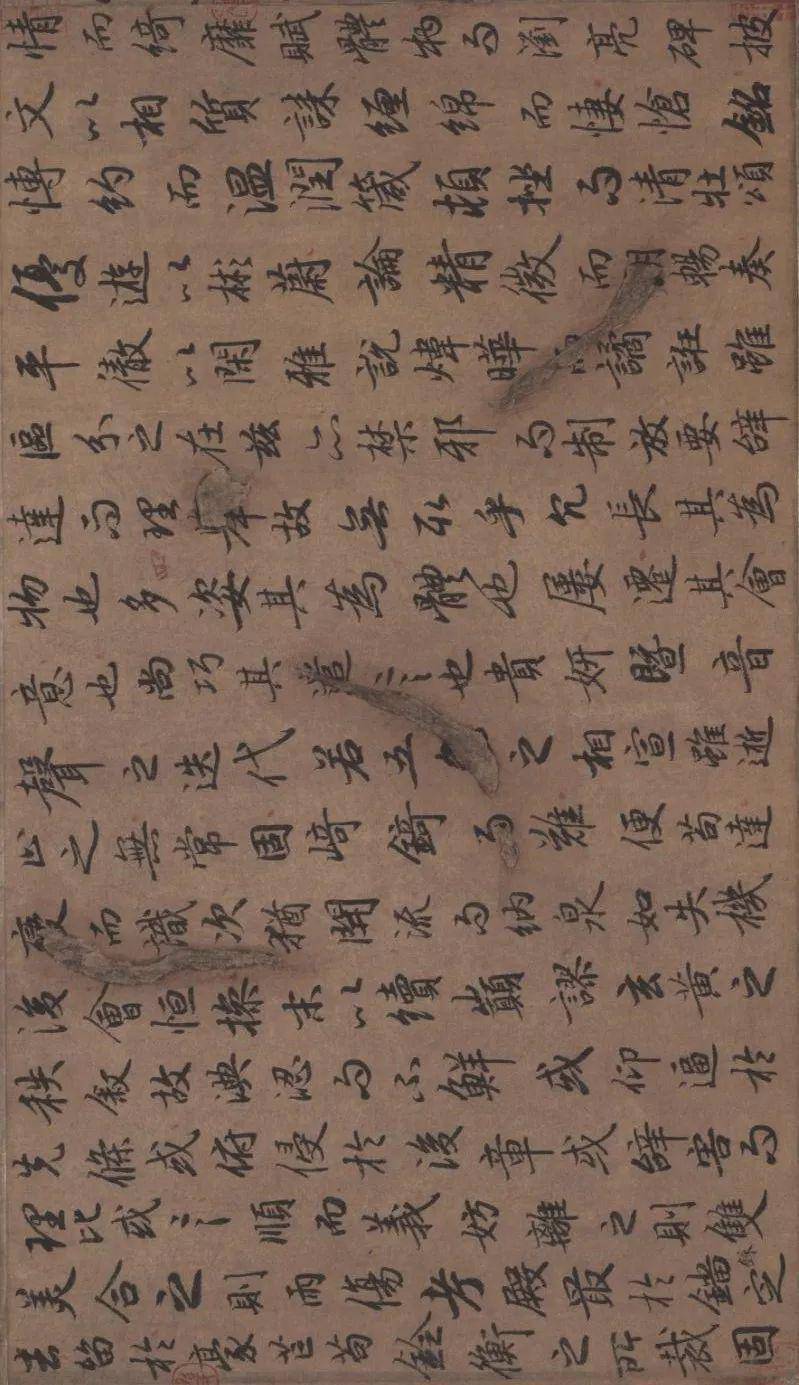 情而綺靡賦體物而瀏亮碑披
文以相質誄纏綿而悽愴銘
博約而溫潤箴頓挫而清壯頌
優遊以彬蔚論精微而朗暢奏
平徹以閑雅說煒曄譎誑雖
區分之在茲亦禁邪而制放要辭
達而理舉故無取乎冗長其為
物也多姿其為體也屢遷其會
意也尚巧其遣言也貴妍暨音
聲之迭代若五色之相宣雖逝
止之無常固崎錡而難便苟達
變而識次猶開流而納泉如失機
後會恒操末以續顛謬玄黃之
秩敘故淟涊而不鮮或仰逼於
先條或俯侵於後章或辭害而
理比或言順而義妨離之則雙
美合之則兩傷考殿最於錙銖定
去留於豪芒苟銓衡之所裁固